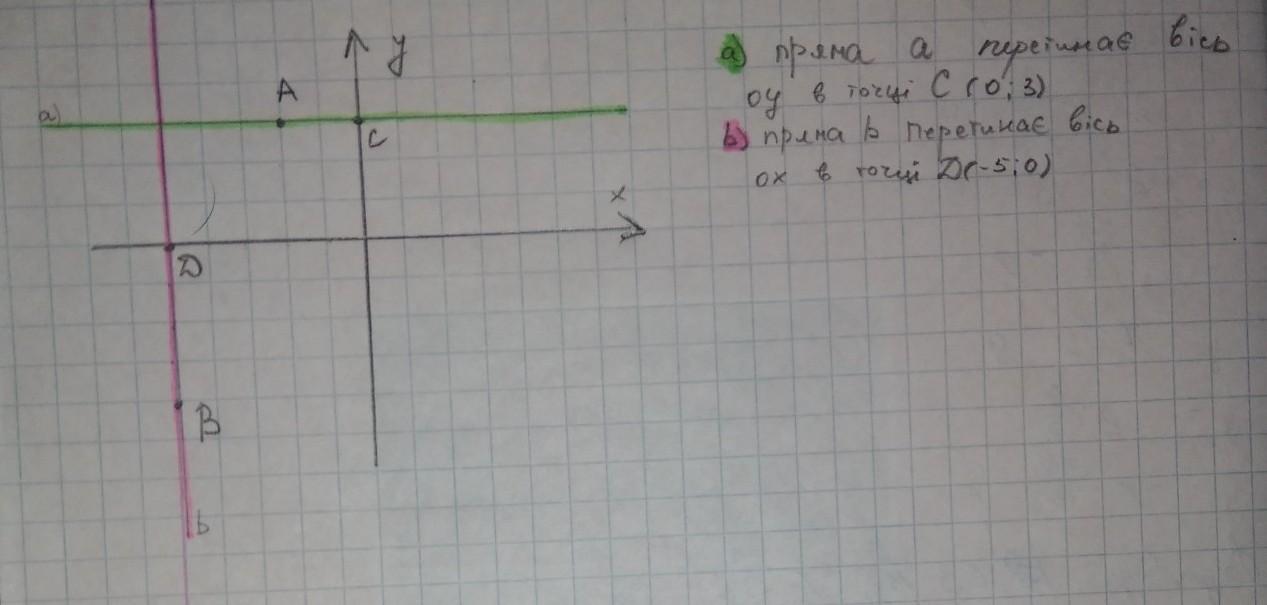 y
a) A
C
x
D
B
b
а) пряма а перетинає вісь
oy в точці C (0; 3)
b) пряма b перетинає вісь
ox в точці D(-5; 0)